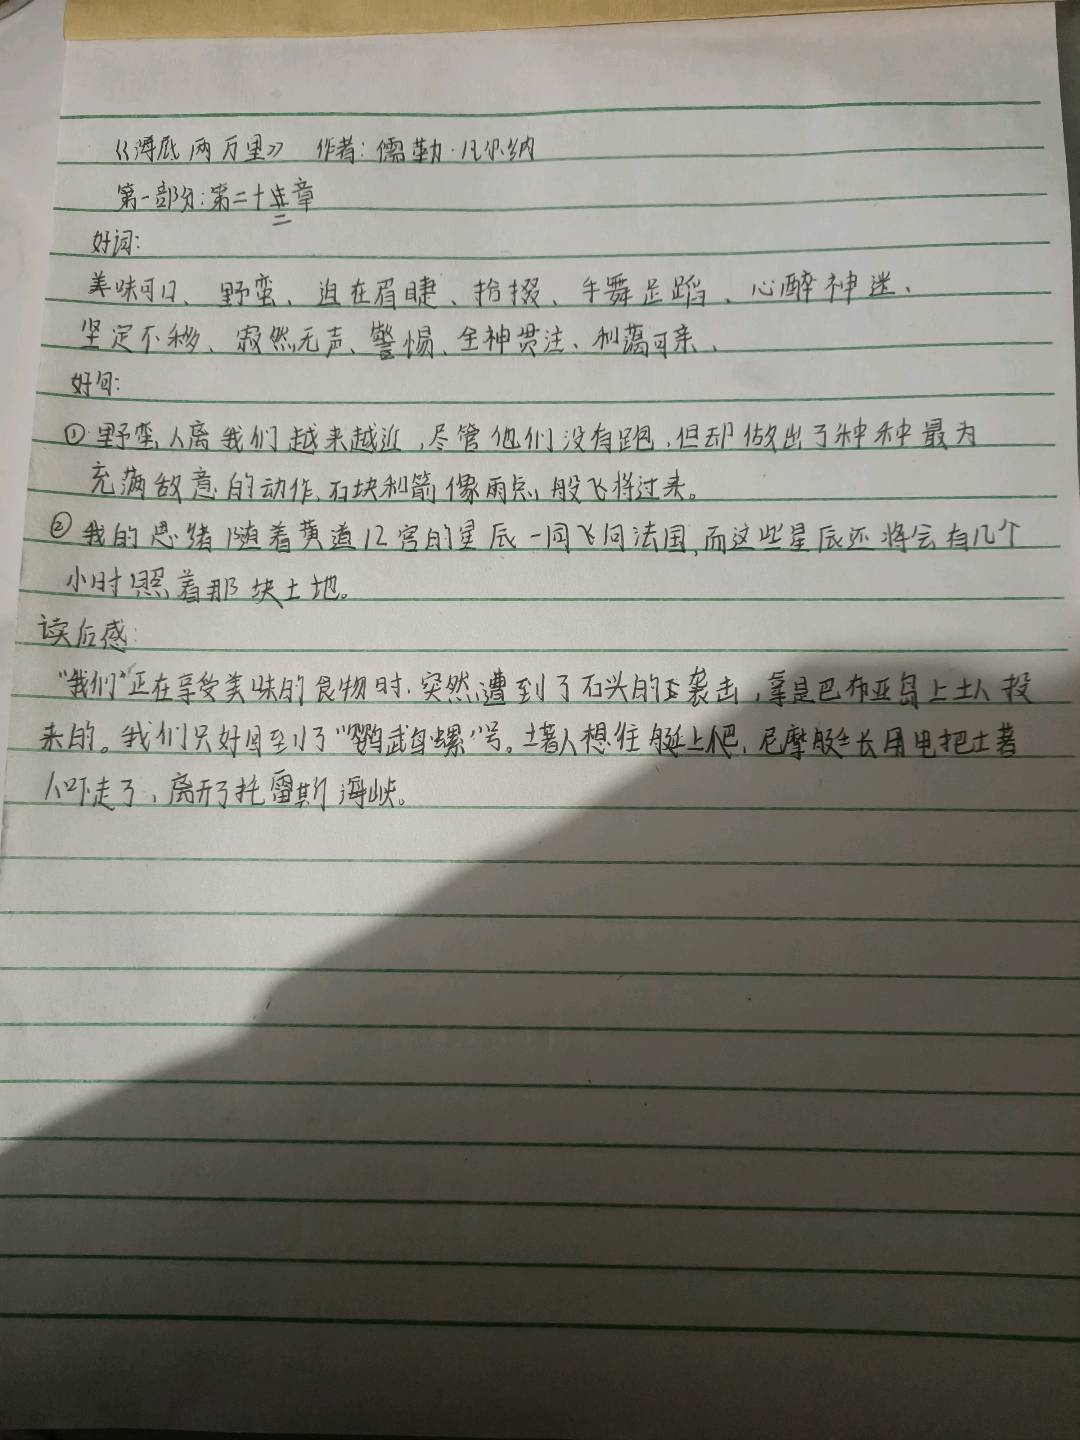 《海底两万里》 作者:儒勒·凡尔纳
第一部分:第二十二章
好词:
美味可口、野蛮、迫在眉睫、拾掇、手舞足蹈、心醉神迷、
坚定不移、寂然无声、警惕、全神贯注、和蔼可亲、
好句:
①野蛮人离我们越来越近,尽管他们没有跑,但却做出了种种最为
充满敌意的动作,石块和箭像雨点般飞将过来。
②我的思绪随着黄道12宫的星辰一同飞向法国,而这些星辰还将会有几个
小时照着那块土地。
读后感:
“我们”正在享受美味的食物时,突然遭到了石头的袭击,是巴布亚岛上土人投
来的。我们只好回到了“鹦鹉螺”号。土著人想往艇上爬,尼摩艇长用电把土著
人吓走了,离开了托雷斯海峡。